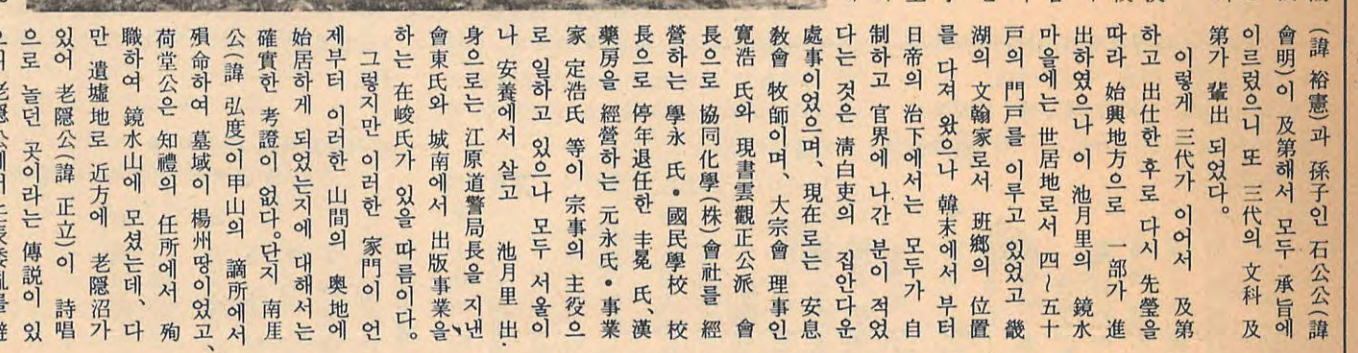 (諱 裕憲)과 孫子인 石公公(諱
會明)이 及第해서 모두 承旨에
이르렀으니 또 三代의 文科 及
第가 輩出 되었다。
이렇게 三代가 이어서 及第
하고 出仕한 후로 다시 先塋을
따라 始興地方으로 一部가 進
出하였으나 이 池月里의 鏡水
마을에는 世居地로서 四~五十
戸의 門戸를 이루고 있었고 畿
湖의 文翰家로서 班鄕의 位置
를 다져 왔으나 韓末에서 부터
日帝의 治下에서는 모두가 自
制하고 官界에 나간 분이 적었
다는 것은 清白吏의 집안다운
處事이었으며、現在로는 安息
敎會 牧師이며、大宗會 理事인
寛浩 氏와 現書雲觀正公派 會
長으로 協同化學(株)會社를 經
營하는 學永 氏·國民學校 校
長으로 停年退任한 圭冕 氏、漢
藥房을 經營하는 元永氏·事業
家 定浩氏 等이 宗事의 主役으
로 일하고 있으나 모두 서울이
나 安養에서 살고 池月里 出
身으로는 江原道警局長을 지낸
會東氏와 城南에서 出版事業을
하는 在峻氏가 있을 따름이다。
그렇지만 이러한 家門이 언
제부터 이러한 山間의 奧地에
始居하게 되었는지에 대해서는
確實한 考證이 없다。단지 南厓
公(諱 弘度)이 甲山의 謫所에서
殞命하여 墓域이 楊州땅이었고、
荷堂公은 知禮의 任所에서 殉
職하여 鏡水山에 모셨는데、다
만 遺墟地로 近方에 老隱沼가
있어 老隱公(諱 正立)이 詩唱
으로 놀던 곳이라는 傳說이 있